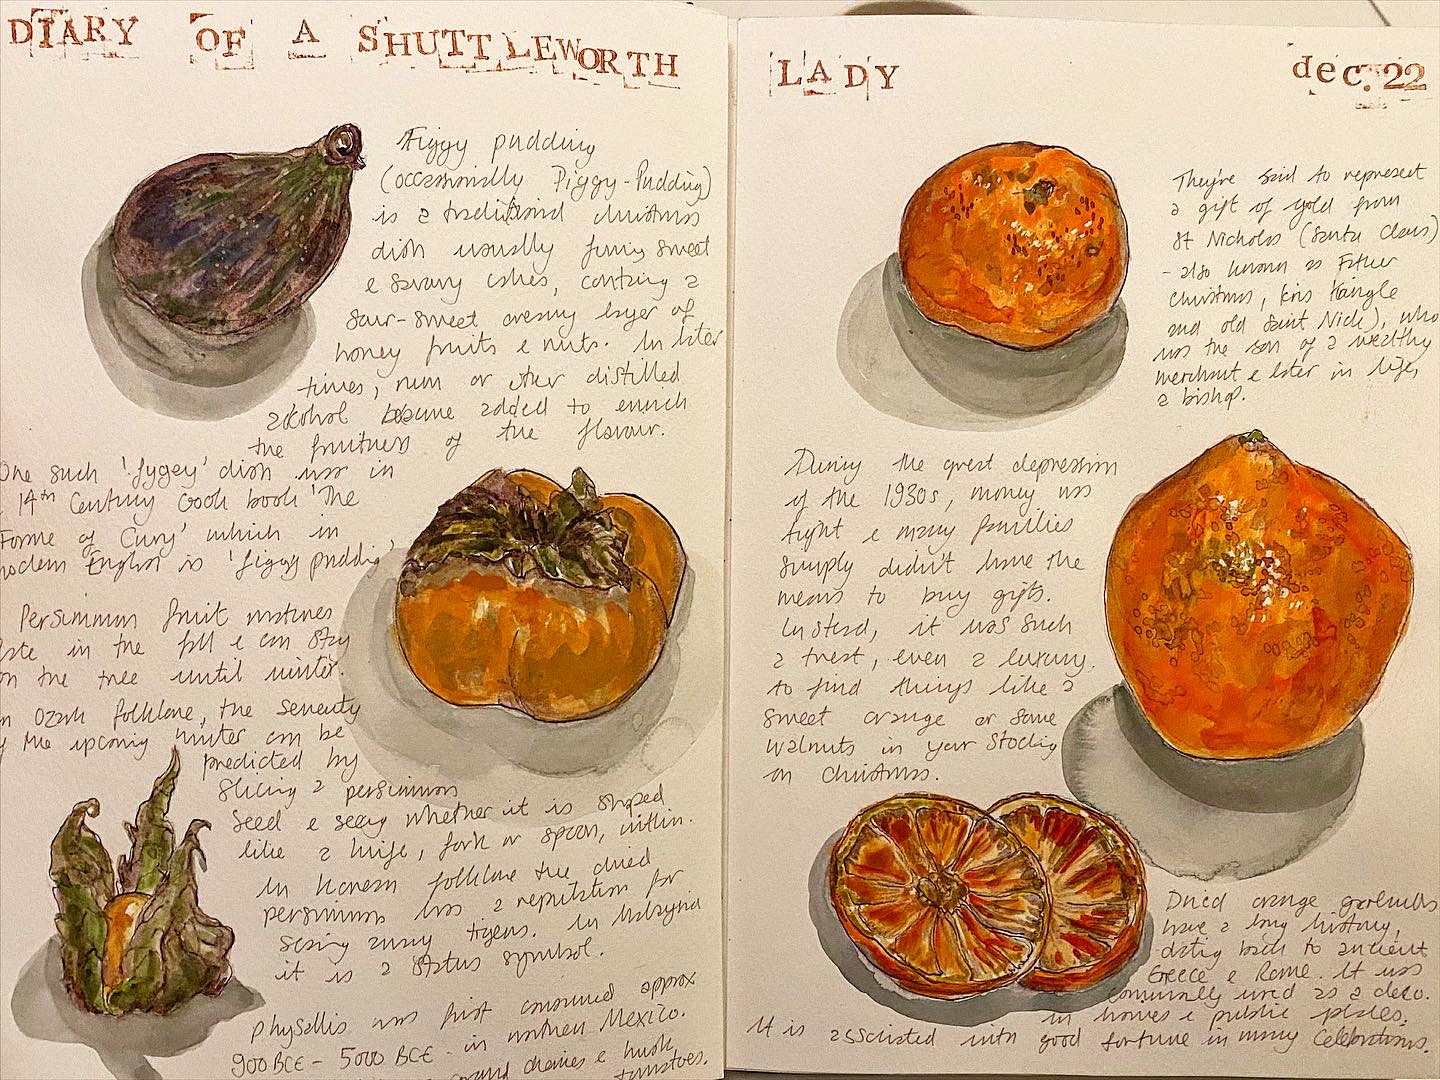 DIARY OF A SHUTTLEWORTH
Figgy pudding
(occasionally Piggy-Pudding)
is a traditional christmas
dish usually funny sweet
e savary cakes, containg a
sour-sweet creamy layer of
honey fruits e nuts. In later
times, rum or other distilled
alcohol became added to enrich
the fruitness of the flavour.
One such 'fygey' dish was in
14th Century Cook book 'The
Forme of Cury' which in
modern English is 'figgy pudding'
Persimmon fruit matures
late in the fall e can stay
on the tree until winter.
In Ozark folklore, the severity
of the upcoming winter can be
predicted by
slicing a persimmon
seed e seeing whether it is shaped
like a knife, fork or spoon, within.
In Korean folklore the dried
persimmon has a reputation for
scaring away tigers. In Malaysia
it is a status symbol.
physallis was first consumed approx
900 BCE - 5000 BCE - in northern Mexico.
ground cherries e husk
tomatoes.
LADY
dec. 22
They're said to represent
a gift of gold from
St Nicholas (Santa Claus)
- also known as Father
Christmas, Kris Kangle
and old Saint Nick), who
was the son of a wealthy
merchant e later in life,
a bishop.
During the great depression
of the 1930s, money was
tight e many families
simply didn't have the
means to buy gifts.
Instead, it was such
a treat, even a luxury,
to find things like a
sweet orange or some
walnuts in your stocking
on christmas.
Dried orange garlands
have a long history,
dating back to ancient
Greece e Rome. It was
commonly used as a deco.
in homes e public places.
It is associated with good fortune in many Celebrations.